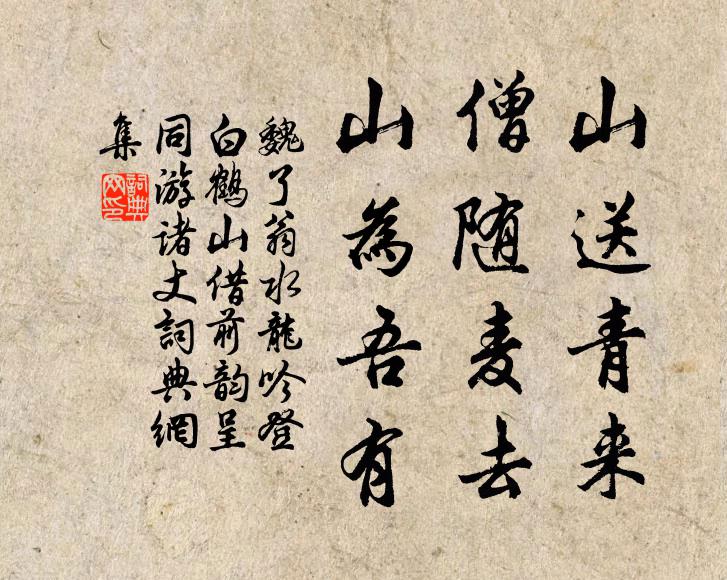 山送青来
僧随麦去
山為吾有
魏了翁水龍吟登
白鶴山借前韵呈
同游诸丈詞典網
集
詞典
网印